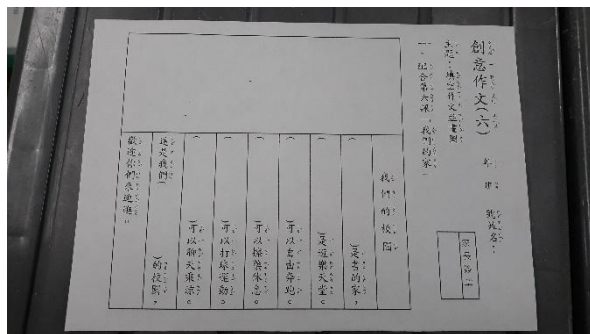 創意作文(六)
年 班 號姓名:
主題:填空作文並畫圖
家長簽章
一、配合第六課「我們的家」
我們的校園
( )是書的家,
( )是遊樂天堂。
( )可以自由奔跑。
( )可以操藥休息
( )可以打球運動。
( )可以聊天乘涼。
這是我們( )的校園,
歡迎你們來逛逛。